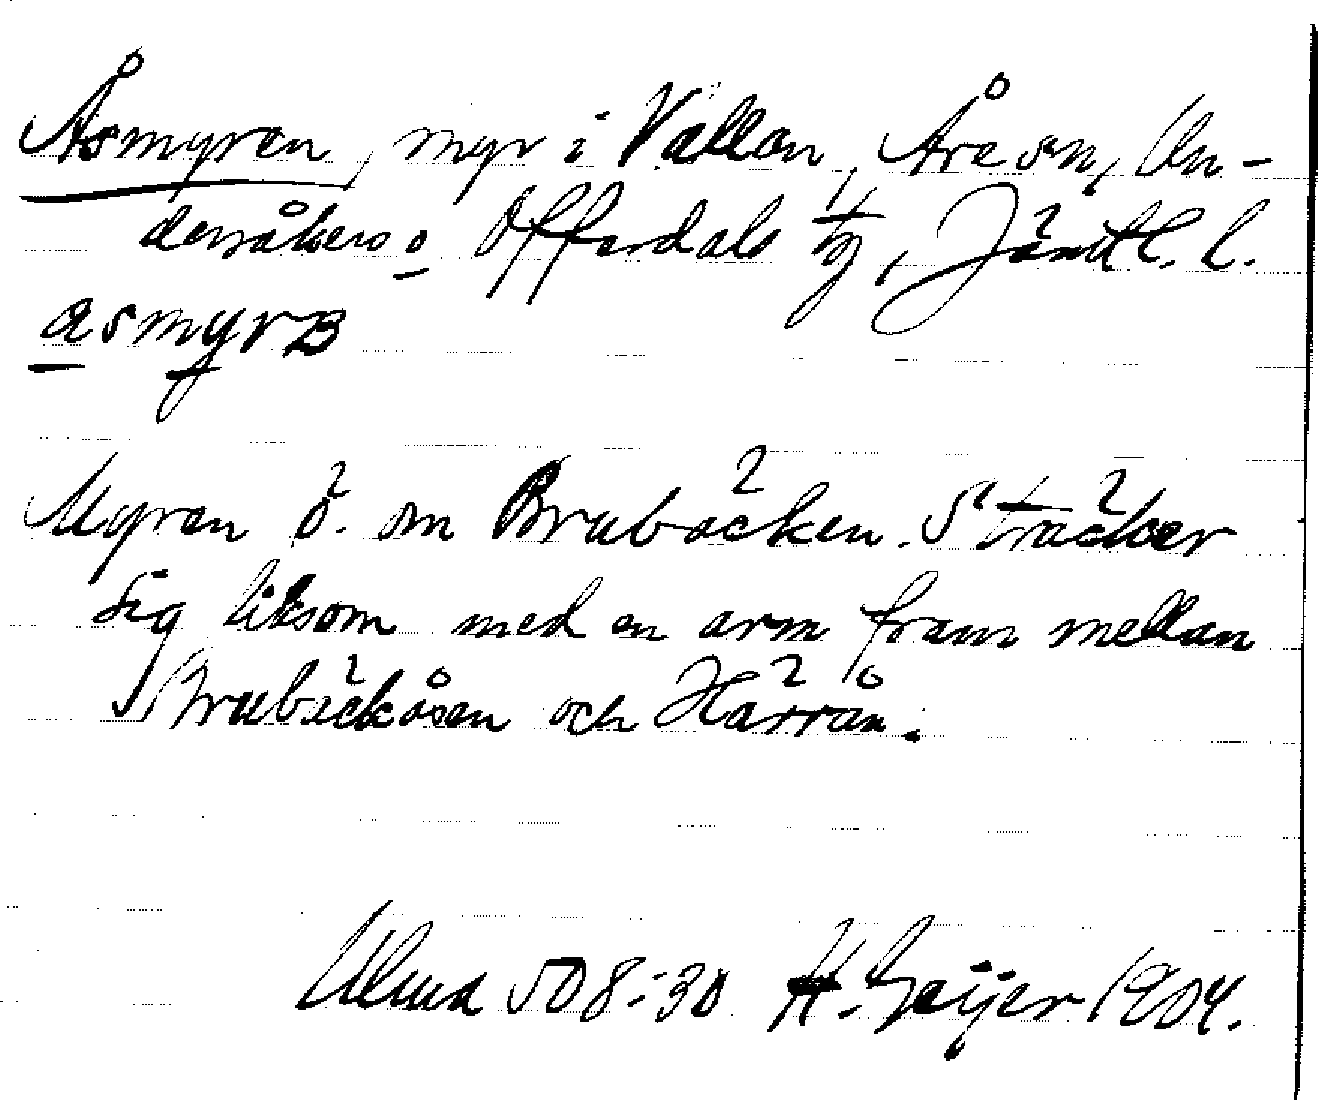 Åsmyren, myr i Vallan, Åre sn, Un-
dersåkers o Offerdals tg, Jämtl. l.
asmyrɜ
Myren ö. om Brubäcken. Sträcker
sig liksom med en arm fram mellan
Brubäckåsen och Härrån.
Ulma 508:30 H. Geijer 1904.